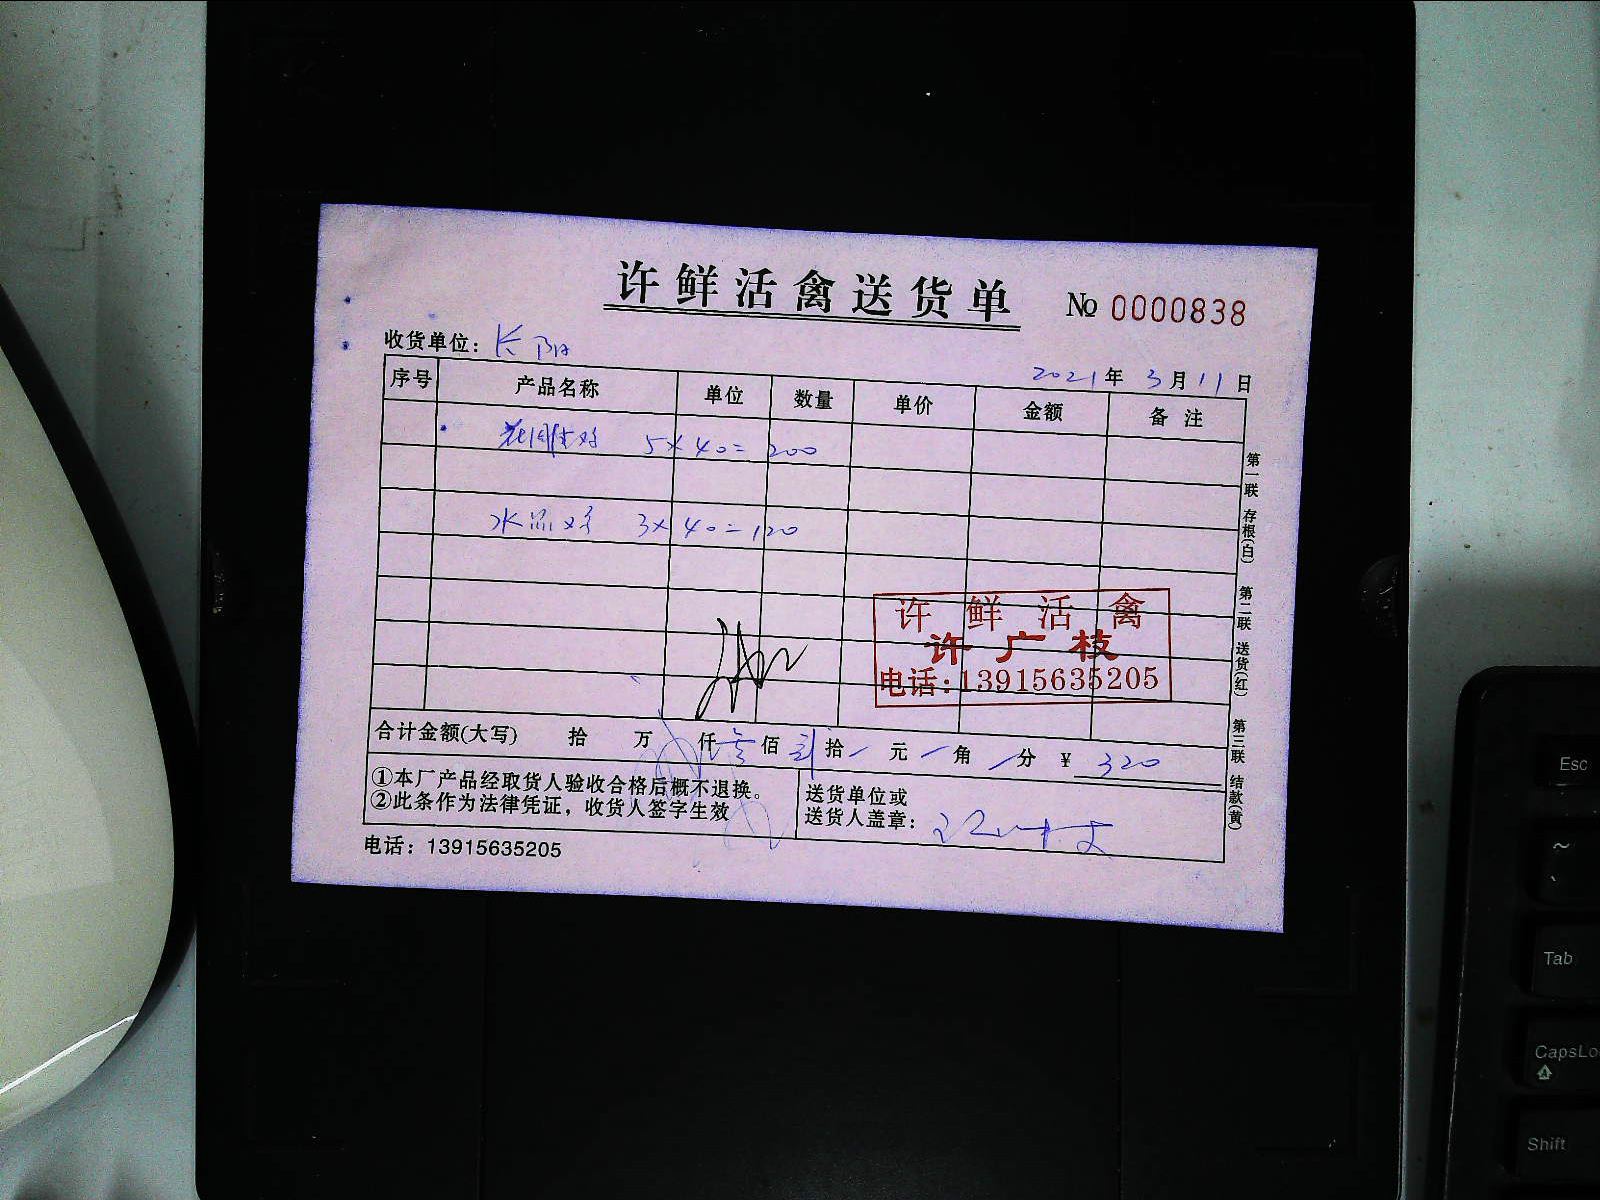 许鲜活禽送货单 № 0000838
收货单位：长阳
2021年 3月 11日
序号 产品名称 单位 数量 单价 金额 备注
5×40=200
3×40=120
许鲜活禽
许广枝
电话:13915635205
合计金额(大写) 拾 万 仟 叁 佰 贰 拾 / 元 / 角 / 分 ¥ 320
①本厂产品经取货人验收合格后概不退换。
②此条作为法律凭证，收货人签字生效
送货单位或
送货人盖章：
电话：13915635205
第一联 存根(白) 第二联 送货(红) 第三联 结款(黄)
Esc
~
、
Tab
CapsLo
Shift